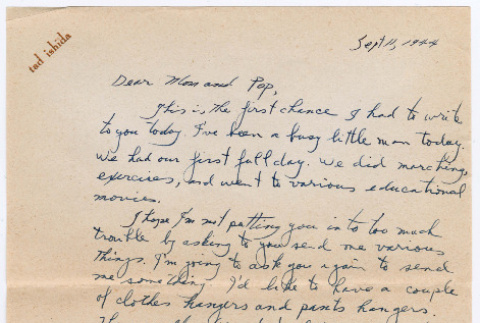 ted ishida
Sept 11, 1944
Dear Mom and Pop,
This is the first chance I had to write
to you today. I've been a busy little man today.
We had our first full day. We did marching,
exercises, and went to various educational
movies.
I hope I'm not putting you into too much
trouble by asking to you send me various
things. I'm going to ask you again to send
me something. I'd like to have a couple
of clothes hangers and pants hangers.